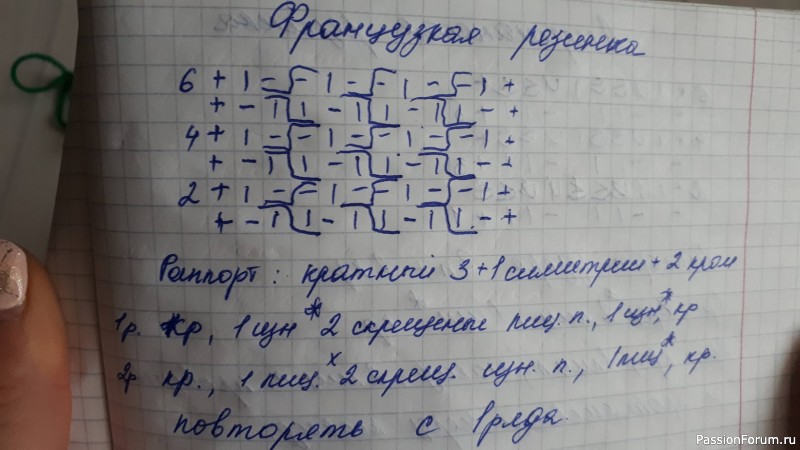 Французкая резинка
6 + 1 - - 1 - - 1 - - 1 +
+ - 1 1 - 1 1 - 1 1 - +
4 + 1 - - 1 - - 1 - - 1 +
+ - 1 1 - 1 1 - 1 1 - +
2 + 1 - - 1 - - 1 - - 1 +
+ - 1 1 - 1 1 - 1 1 - +
Раппорт: кратный 3 + 1 симетрии + 2 кром
1р. кр, 1 изн * 2 скрещеные лиц. п., 1 изн*, кр
2р кр., 1 лиц. * 2 скрещ. изн. п., 1 лиц*, кр.
повторять с 1 ряда.
PassionForum.ru